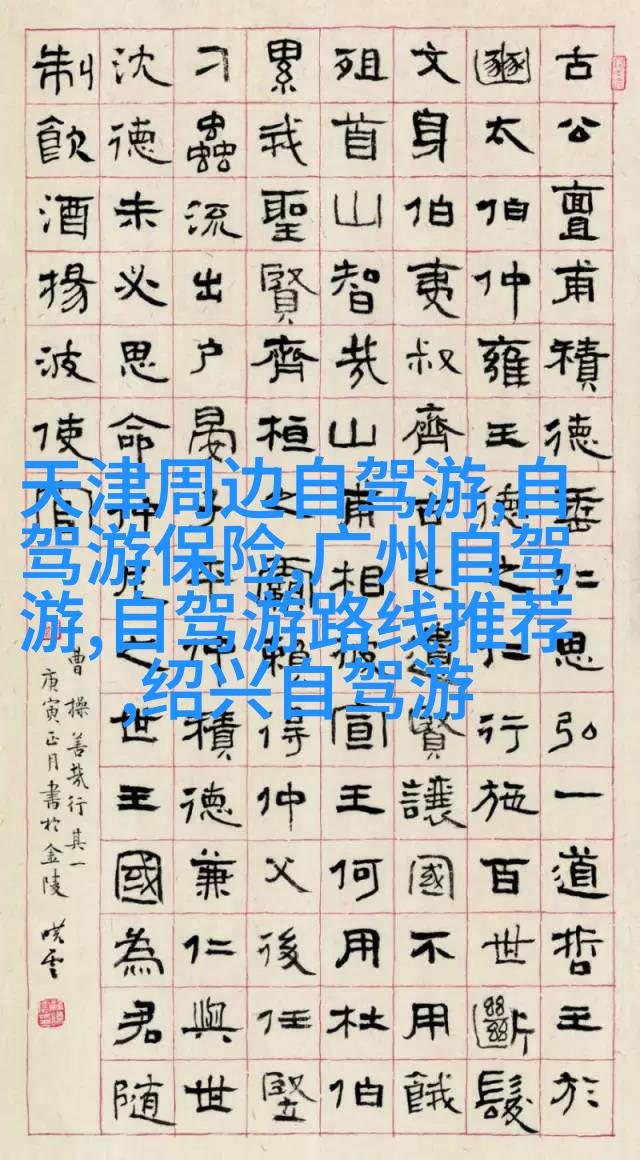 天津周边自驾游,自
驾游保险,广州自驾
游,自驾游路线推荐
,绍兴自驾游
古公亶甫積德垂仁思弘一道哲王於
豳太伯仲雍王德之仁行施百世斷髮
文身伯夷叔齊古之遺賢讓國不用餓
殂首山智哉山甫相彼宣王何用杜伯
累我聖賢齊桓之霸賴得仲父後任豎
刁蟲流出戶晏子平仲積德兼仁與世
沈德未必思命仲尼之世王國為君隨
制飲酒揚波使官
曹操善哉行其一
庚寅正月書於金陵